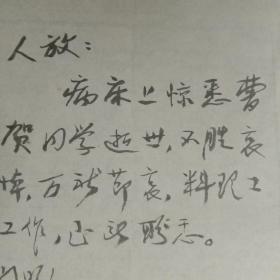 人放：
病床上惊悉曹
贺同学逝世，不胜哀
悼，万望节哀，料理工
工作，